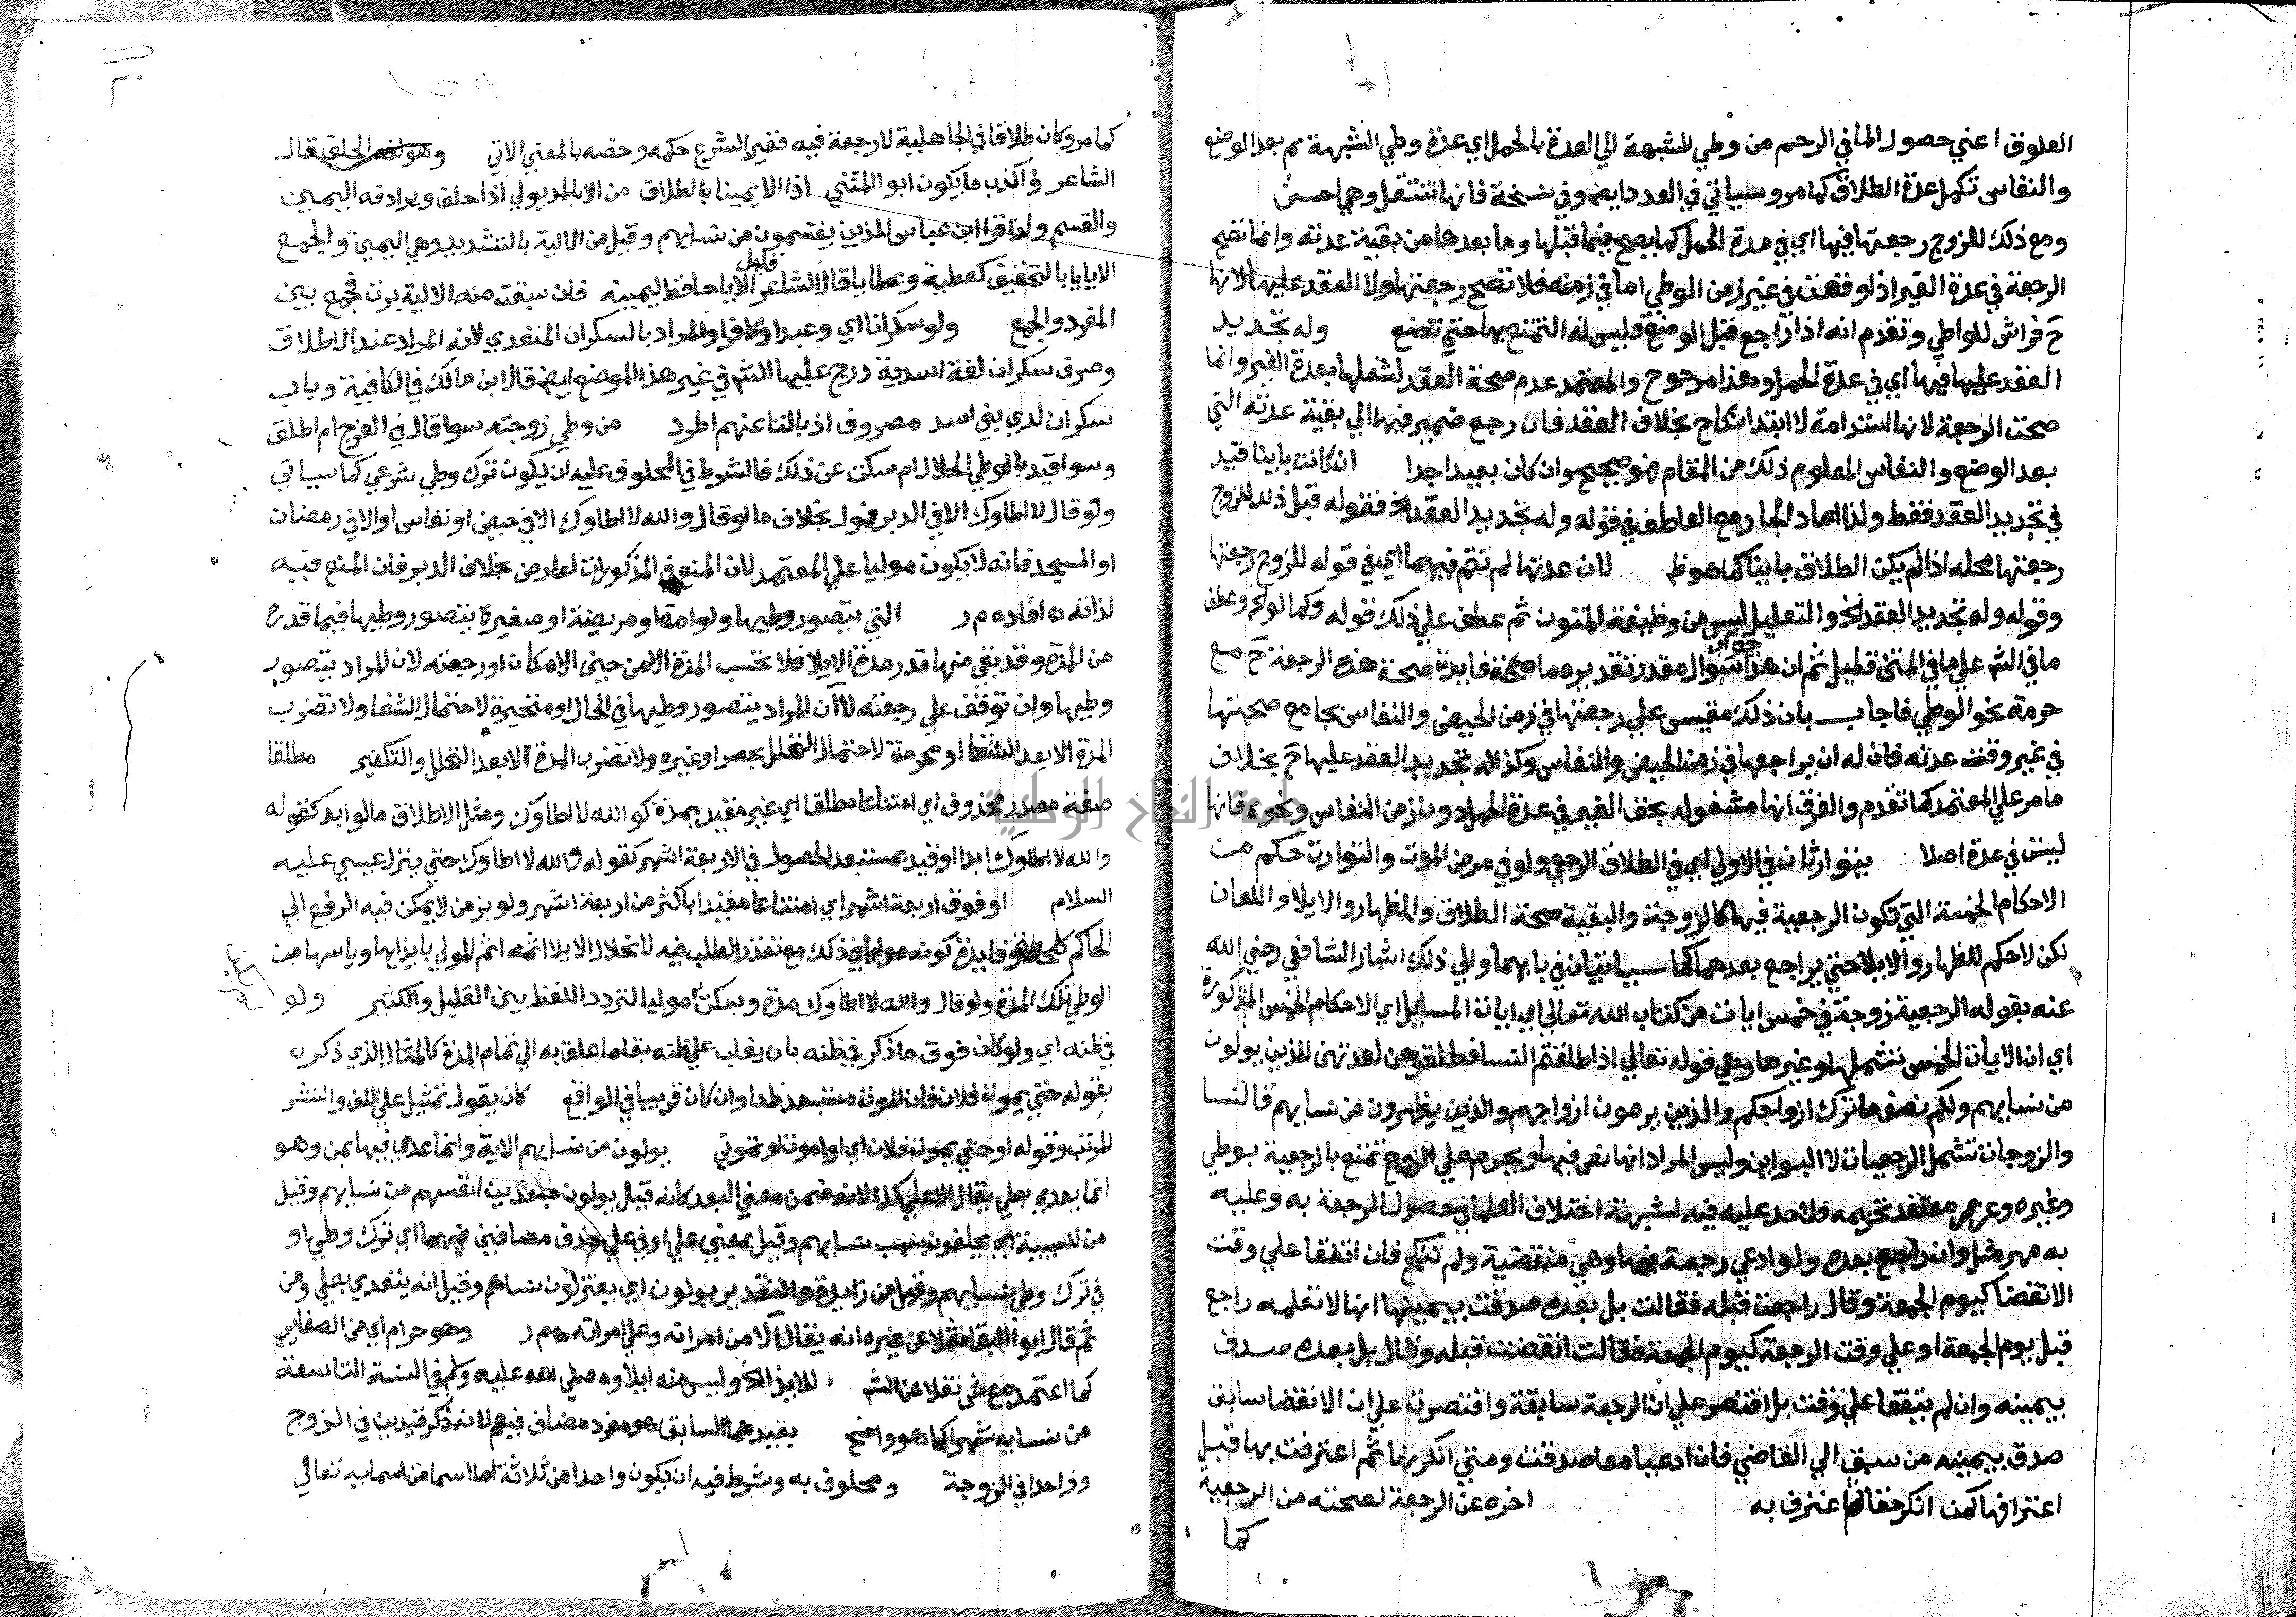 العلوق اعني حصول الما في الرحم من وطي الشبهة الي العدة بالحمل اي عدة وطي الشبهة ثم بعد الوضع
والنفاس تكمل عدة الطلاق كما مر وسياتي في العدد ايض وفي نسخة فانها تنتقل وهي احسن
ومع ذلك للزوج رجعتها فيها اي في مدة الحمل كما يصح فيما قبلها وما بعدها من بقية عدته وانما تصح
الرجعة في عدة الغير اذا وقعت في غير زمن الوطي اما في زمنه فلا تصح رجعتها ولا العقد عليها لانها
ح فراش للواطي وتقدم انه اذا راجع قبل الوضع فليس له التمتع بها حتي تضع وله تجديد
العقد عليها فيها اي في عدة الحمل وهذا مرجوح والمعتمد عدم صحة العقد لشغلها بعدة الغير وانما
صحت الرجعة لانها استدامة لا ابتدا نكاح بخلاف العقد فان رجع ضمير فيها الي بقية عدته التي
بعد الوضع والنفاس المعلوم ذلك من المقام فهو صحيح وان كان بعيدا جدا ان كانت باينا قيد
في تجديد العقد فقط ولذا اعاد الجار مع العاطف في قوله وله تجديد العقد الخ فقوله قبل ذلك للزوج
رجعتها محله اذا لم يكن الطلاق باينا كما هو ظ لان عدتها لم تتم فيهما اي في قوله للزوج رجعتها
وقوله وله تجديد العقد الخ والتعليل ليس من وظيفة المتون ثم عطف علي ذلك قوله وكما لو
ما في الش علي ما في المتن قليل ثم ان هذا جواب سوال مقدر تقديره ما صحة فايدة صحة هذه الرجعة ح مع
حرمة نحو الوطي فاجاب بان ذلك مقيس علي رجعتها في زمن الحيض والنفاس بجامع صحتها
في غير وقت عدته فان له ان يراجعها في زمن الحيض والنفاس وكذا له تجديد العقد عليها ح بخلاف
ما مر علي المعتمد كما تقدم والفرق انها مشغوله بحق الغير في عدة الحمل دون زمن النفاس ونحوه فانها
ليست في عدة اصلا يتوارثان في الاولي اي في الطلاق الرجعي ولو في مرض الموت والتوارث حكم من
الاحكام الخمسة التي تكون الرجعية فيها كالزوجة والبقية صحة الطلاق والظهار والايلا واللعان
لكن لا حكم للظهار والايلا حتي يراجع بعدهما كما سياتيان في بابهما والي ذلك اشار الشافعي رضي الله
عنه بقوله الرجعية زوجة في خمس ايات من كتاب الله تعالي اي ايات المسايل اي الاحكام الخمس المذكورة
اي ان الايات الخمس تشملها وغيرها وهي قوله تعالي اذا طلقتم النسا فطلقوهن لعدتهن للذين يولون
من نسايهم ولكم نصف ما ترك ازواجكم والذين يرمون ازواجهم والذين يظهرون من نسايهم فالنسا
والزوجات تشمل الرجعيات لا البواين وليس المراد انها نص فيها ويحرم علي الزوج تمتع بالرجعية بوطي
وغيره وعزر معتقد تحريمه فلا حد عليه فيه لشبهة اختلاف العلما في حصول الرجعة به وعليه
به مهر مثل وان راجع بعده ولو ادعي رجعة فيها وهي منقضية ولم تنكح فان اتفقا علي وقت
الانقضا كيوم الجمعة وقال راجعت قبله فقالت بل بعده صدقت بيمينها انها لا تعلمه راجع
قبل يوم الجمعة او علي وقت الرجعة كيوم الجمعة فقالت انقضت قبله وقال بل بعده صدق
بيمينه وان لم يتفقا علي وقت بل اقتصر علي ان الرجعة سابقة واقتصرت علي ان الانقضا سابق
صدق بيمينه من سبق الي القاضي فان ادعيا معا صدقت ومتي انكرتها ثم اعترفت بها قبل
اعترافها كمن انكر حقا ثم اعترف به اخره عن الرجعة لصحته من الرجعية
كما
كما مر وكان طلاقا في الجاهلية لا رجعة فيه فغير الشرع حكمه وخصه بالمعني الاتي وهو لغة الحلف قال
الشاعر واكذب ما يكون ابو المثني اذا الا يمينا بالطلاق من الا بالمد يولي اذا حلف ويرادفه اليمين
والقسم ولذا قرا ابن عباس للذين يقسمون من نسايهم وقيل من الالية بالتشديد وهي اليمين والجمع
الايايا بالتخفيف كعطية وعطايا قال الشاعر قليل الالايا حافظ ليمينه فان سبقت منه الالية برت فجمع بين
المفرد والجمع ولو سكرانا اي وعبدا وكافرا والمراد بالسكران المتعدي لانه المراد عند الاطلاق
وصرف سكران لغة اسدية درج عليها الش في غير هذا الموضع ايض قال ابن مالك في الكافية وباب
سكران لدي بني اسد مصروف اذ بالتا عنهم اطرد من وطي زوجته سوا قال في الفرج ام اطلق
وسوا قيد بالوطي الحلال ام سكت عن ذلك فالشرط في المحلوف عليه ان يكون ترك وطي شرعي كما سياتي
ولو قال لا اطاوك الا في الدبر فمول بخلاف ما لو قال والله لا اطاوك الا في حيض او نفاس او الا في رمضان
او المسجد فانه لا يكون موليا علي المعتمد لان المنع في المذكورات لعارض بخلاف الدبر فان المنع فيه
لذاته ه افاده م ر التي يتصور وطيها ولو امة او مريضة او صغيرة يتصور وطيها فيما قدره
من المدة وقد بقي منها قدر مدة الايلا فلا تحسب المدة الا من حين الامكان او رجعته لان المراد يتصور
وطيها وان توقف علي رجعته لا ان المراد يتصور وطيها في الحال او متحيرة لاحتمال الشفا ولا تضرب
المدة الا بعد الشفا او محرمة لاحتمال التحلل بحصر او غيره ولا تضرب المدة الا بعد التحلل والتكفير مطلقا
صفة مصدر محذوف اي امتناعا مطلقا اي غير مقيد بمدة كو الله لا اطاوك ومثل الاطلاق ما لو ابد كقوله
والله لا اطاوك ابدا او قيد بمستبعد الحصول في الاربعة اشهر كقوله والله لا اطاوك حتي ينزل عيسي عليه
السلام او فوق اربعة اشهر اي امتناعا مقيدا باكثر من اربعة اشهر ولو بزمن لا يمكن فيه الرفع الي
الحاكم فايدة كونه موليا في ذلك مع تعذر الطلب فيه لانحلال الايلا اثمه اثم المولي بايذايها وياسها من
الوطي تلك المدة ولو قال والله لا اطاوك مدة وسكت موليا لتردد اللفظ بين القليل والكثير ولو
في ظنه اي ولو كان فوق ما ذكر في ظنه بان يغلب علي ظنه بقا ما علق به الي تمام المدة كالمثال الذي ذكره
بقوله حتي يموت فلان فان الموت مستبعد ظنا وان كان قريبا في الواقع كان يقول تمثيل علي اللف والنشر
المرتب وقوله او حتي يموت فلان اي او اموت او تموتي يولون من نسايهم الاية وانما عدي فيها بمن وهو
انما يعدي بعلي يقال الا علي كذا لانه ضمن معني البعد كانه قيل يولون مبعدين انفسهم من نسايهم وقيل
من للسببية اي يحلفون بسبب نسايهم وقيل بمعني علي او في علي حذف مضاف فيهما اي ترك وطي او
في ترك وطي نسايهم وقيل من زايدة والتقدير يولون اي يعتزلون نساهم وقيل انه يتعدي بعلي ومن
ثم قال ابو البقا نقلا عن غيره انه يقال الا من امراته وعلي امراته ه م ر وهو حرام اي من الصغاير
كما اعتمده ع ش نقلا عن الش للايذا ولبس منه ايلاوه صلي الله عليه وسلم في السنة التاسعة
من نسايه شهرا كما هو واضح بقيدهما السابق هو مفرد مضاف فيعم لانه ذكر قيدين في الزوج
وواحدا في الزوجة ومحلوف به وشرط فيه ان يكون واحدا من ثلاثة اما اسما من اسمايه تعالي